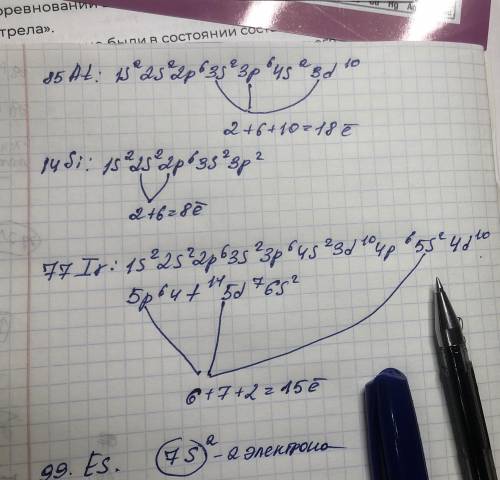 оревновании
трела».
были в состоянии сост
Hg
85 At: 1s²2s²2p⁶3s²3p⁶4s²3d¹⁰
2+6+10=18ē
14 Si: 1s²2s²2p⁶3s²3p²
2+6=8ē
77 Ir: 1s²2s²2p⁶3s²3p⁶4s²3d¹⁰4p⁶5s²4d¹⁰
5p⁶4f¹⁴5d⁷6s²
6+7+2=15ē
99. ES. 7S² - 2 электрона